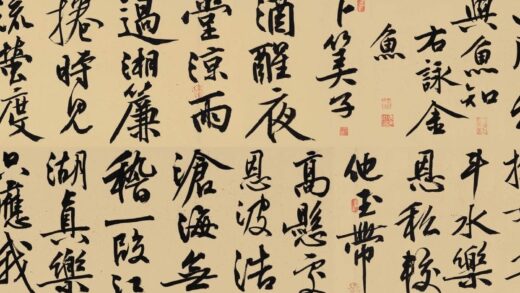 與魚知
右詠金
魚
卜算子
酒醒夜
堂涼雨
過湘簾
捲時見
流螢度
斗水樂
恩私較
他玉帶
高懸
恩波浩
滄海無
稽一段江
湖真樂
只應我